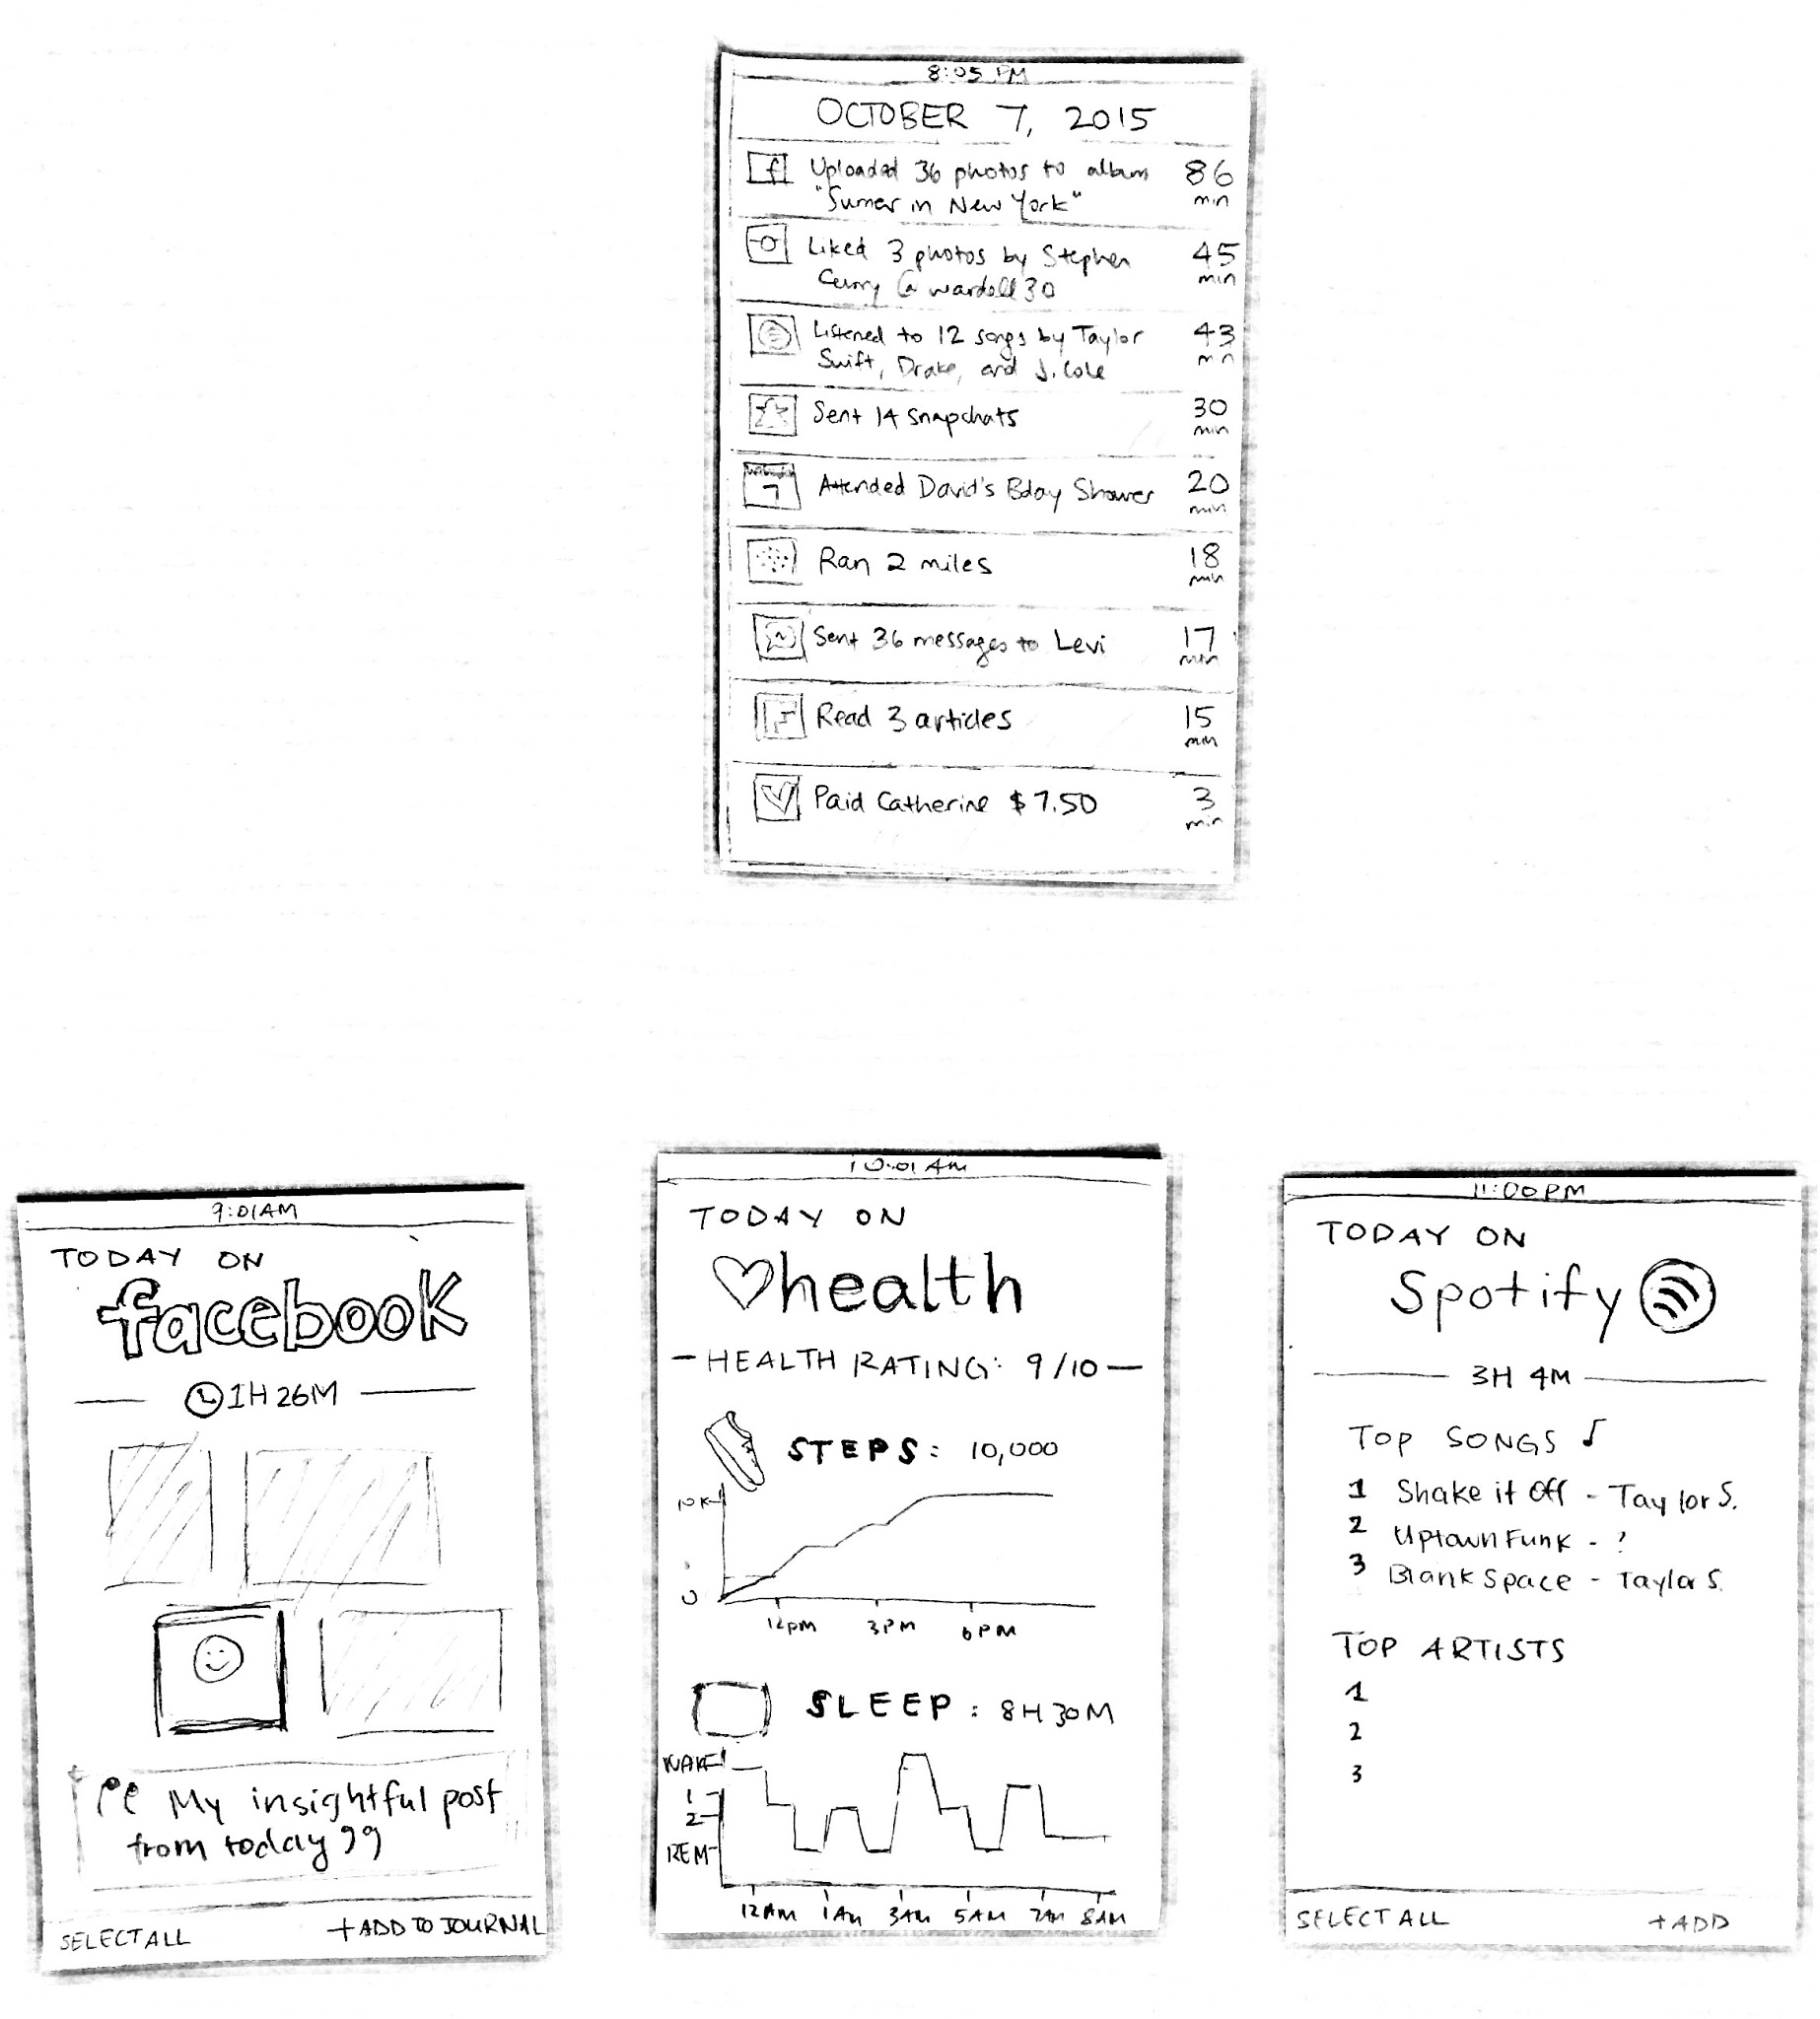 8:05 PM
OCTOBER 7, 2015
f Uploaded 36 photos to album 86
"Sumer in New York" min
Liked 3 photos by Stephen 45
Curry @wardell30 min
Listened to 12 songs by Taylor 43
Swift, Drake, and J. Cole min
Sent 14 snapchats 30
min
7 Attended David's Bday Shower 20
min
Ran 2 miles 18
min
Sent 36 messages to Levi 17
min
Read 3 articles 15
min
Paid Catherine $7.50 3
min
9:01AM
TODAY ON
facebook
1H 26M
My insightful post
from today
SELECT ALL +ADD TO JOURNAL
10:01 AM
TODAY ON
health
- HEALTH RATING: 9/10 -
STEPS: 10,000
10K
0
12PM 3PM 6PM
SLEEP: 8H 30M
WAKE
1
2
REM
12AM 1AM 3AM 5AM 7AM 8AM
11:00PM
TODAY ON
Spotify
3H 4M
TOP SONGS
1 Shake it Off - Taylor S.
2 Uptown Funk - ?
3 Blank Space - Taylor S.
TOP ARTISTS
1
2
3
SELECT ALL +ADD